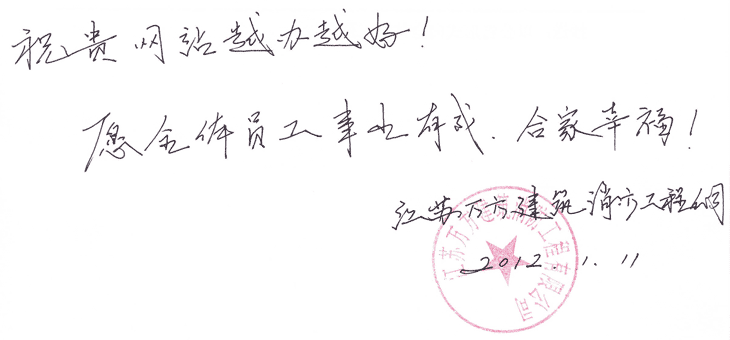 祝贵网站越办越好！
愿全体员工事业有成、合家幸福！
江苏万方建筑消防工程公司
江苏万方建筑消防工程有限公司
2012.1.11